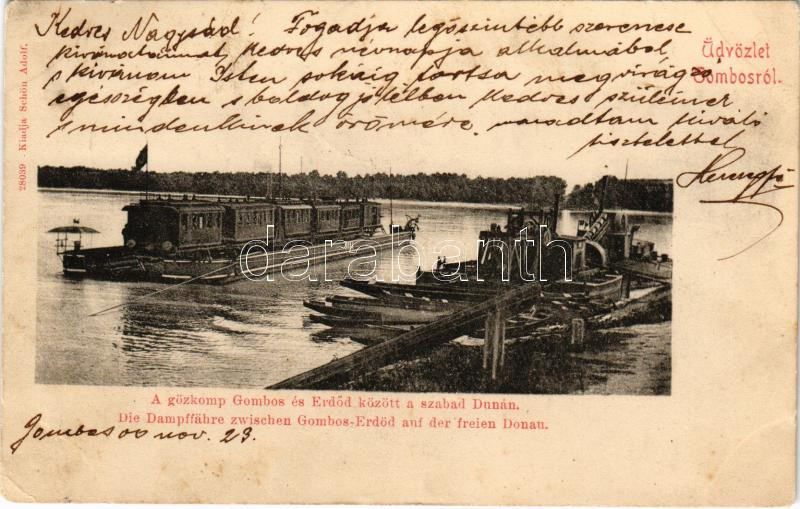 Kedves Nagysád! Fogadja legőszintébb szerencse
kivánataimat, kedves névnapja alkalmából
s kivánom Isten sokáig tartsa meg virágzó
egészségben s boldog jólétben kedves szüleinek
s mindenkinek örömére. maradtam kiváló
tisztelettel
Üdvözlet
Gombosról.
28039 Kiadja Schön Adolf.
darabanth
A gőzkomp Gombos és Erdőd között a szabad Dunán.
Die Dampffähre zwischen Gombos-Erdöd auf der freien Donau.
Gombos 00 nov. 23.